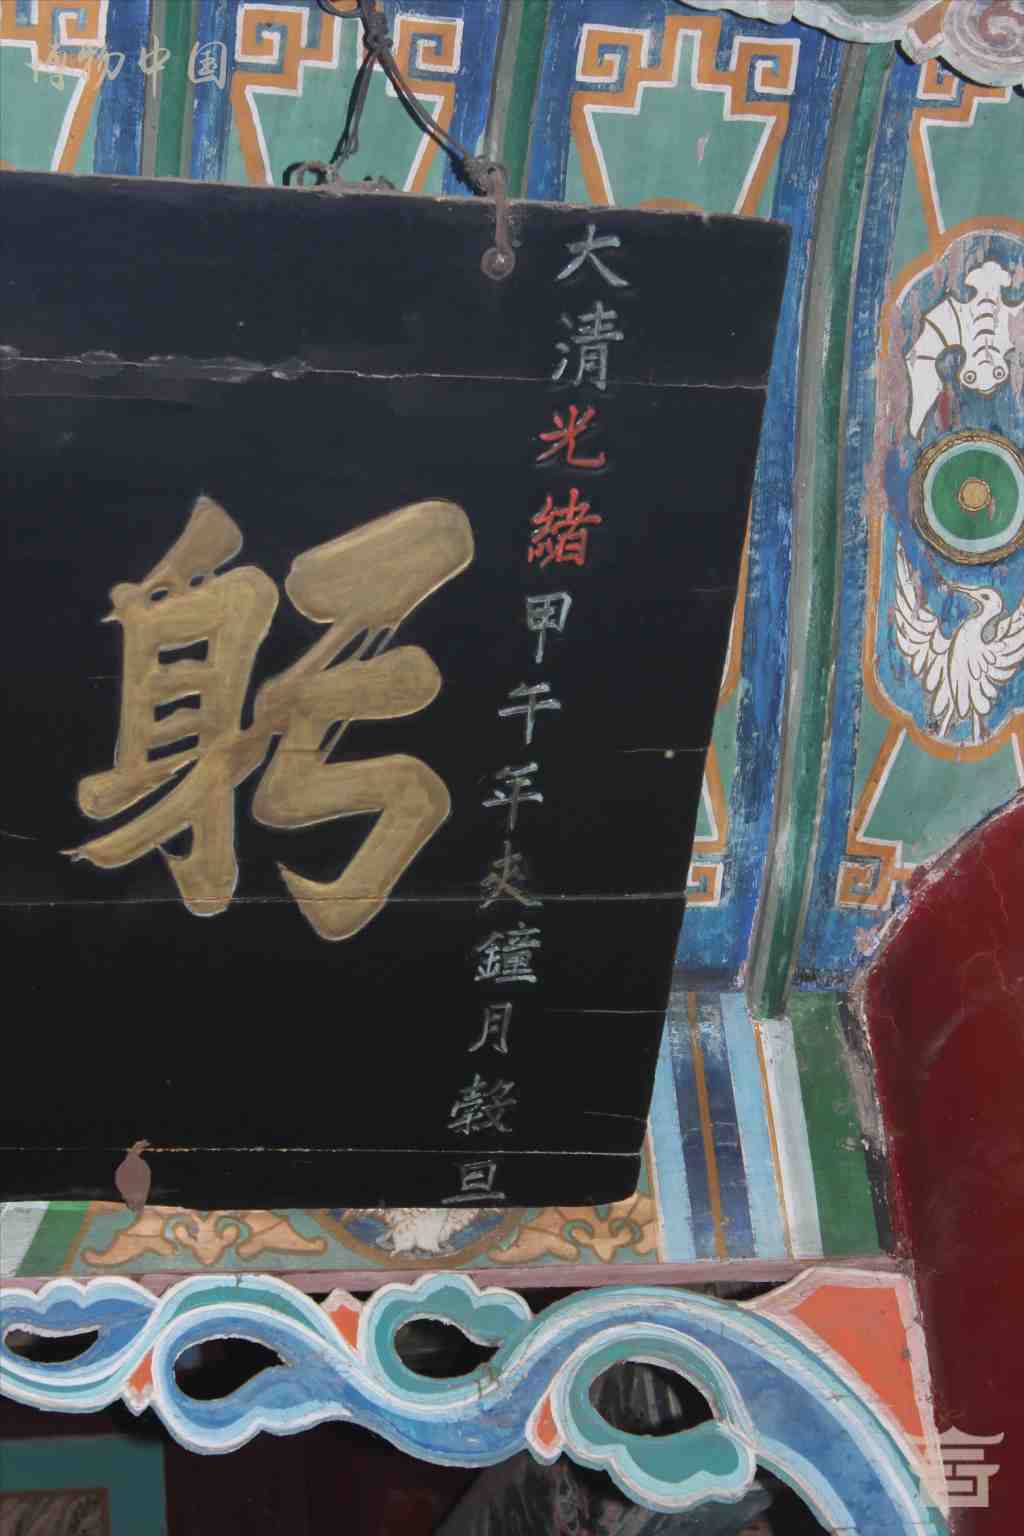 博物中国
大清光緒甲午年夾鐘月穀旦
躬